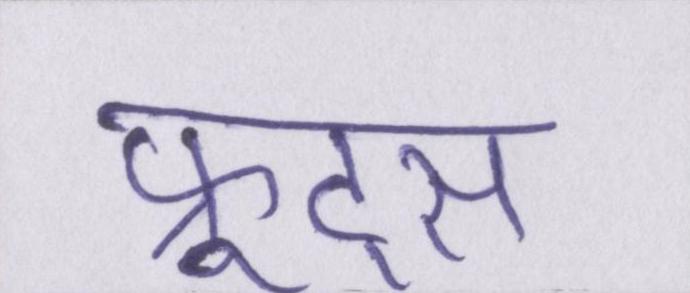 फ्रूट्स